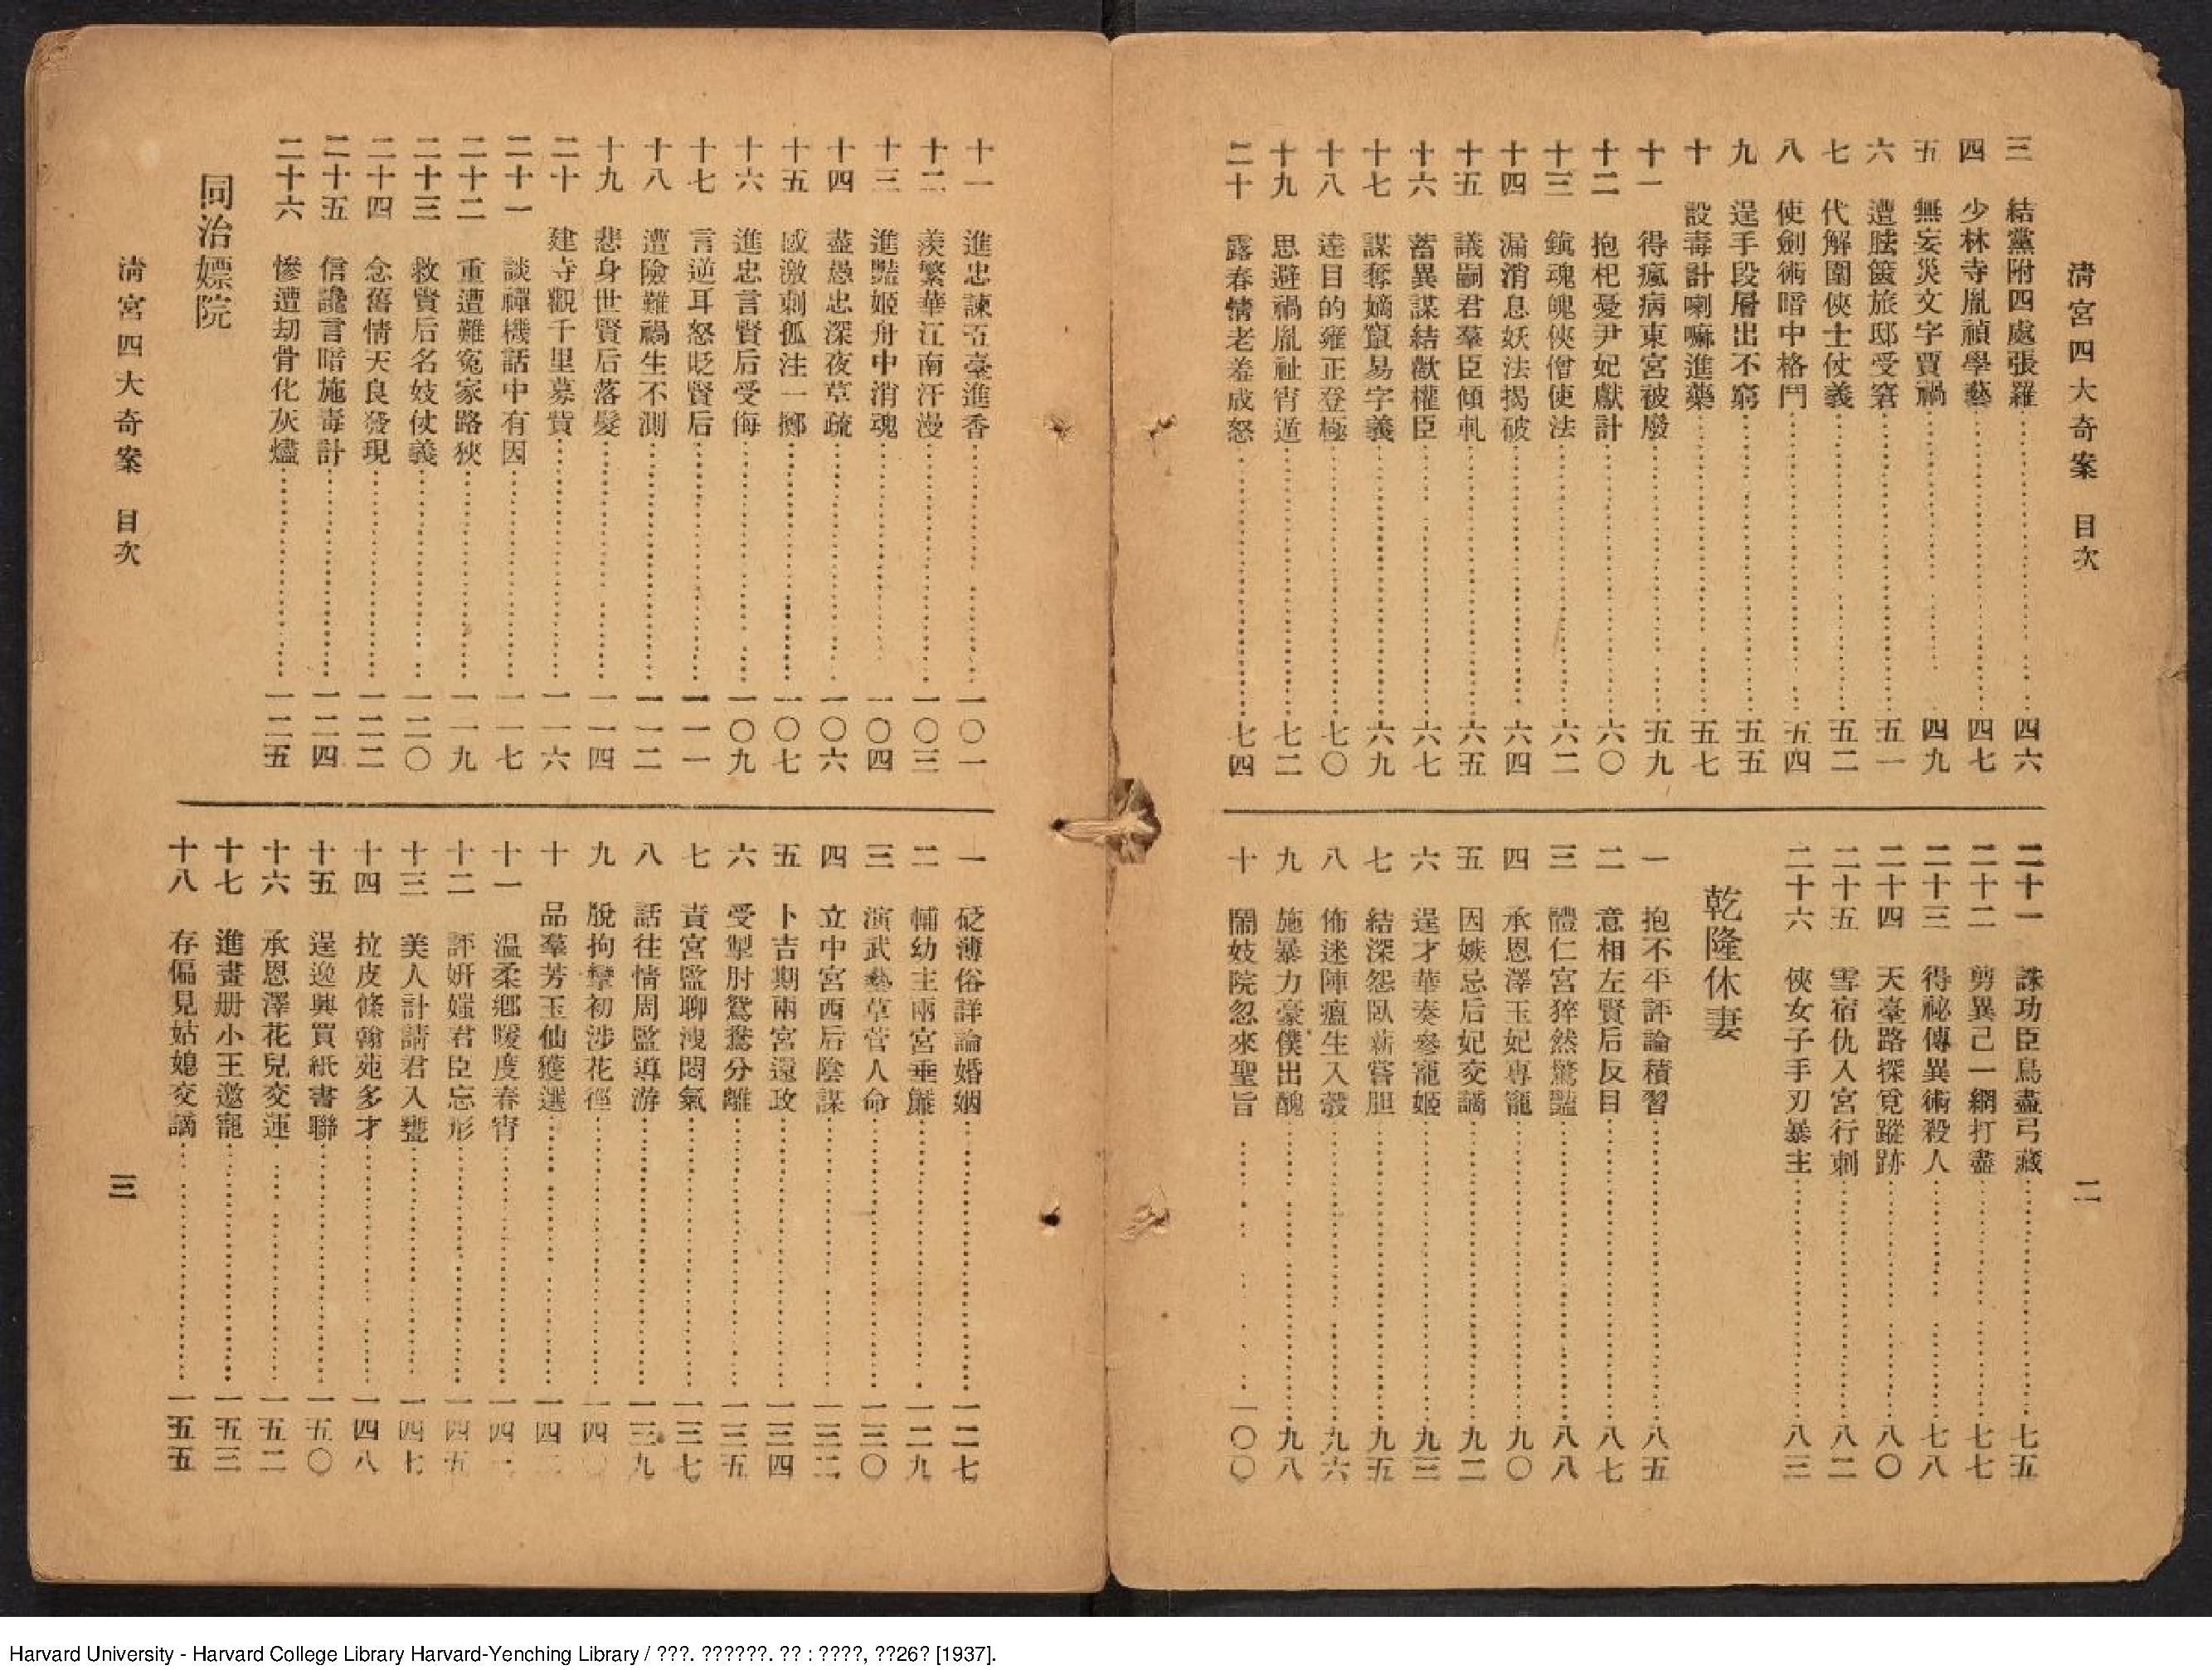 清宮四大奇案 目次 二
三 結黨附四處張羅 四六
四 少林寺胤禎學藝 四七
五 無妄災文字賈禍 四九
六 遭胠篋旅邸受窘 五一
七 代解圍俠士仗義 五二
八 使劍術暗中格鬥 五四
九 逞手段層出不窮 五五
十 設毒計喇嘛進藥 五七
十一 得瘋病東宮被廢 五九
十二 抱杞憂尹妃獻計 六〇
十三 鎮魂魄俠僧使法 六二
十四 漏消息妖法揭破 六四
十五 議嗣君羣臣傾軋 六五
十六 蓄異謀結歡權臣 六七
十七 謀奪嫡竄易字義 六九
十八 達目的雍正登極 七〇
十九 思避禍胤祉宵遁 七二
二十 露春情老羞成怒 七四
二十一 誅功臣鳥盡弓藏 七五
二十二 剪異己一網打盡 七七
二十三 得祕傳異術殺人 七八
二十四 天臺路探覓蹤跡 八〇
二十五 雪宿仇入宮行刺 八二
二十六 俠女子手刃暴主 八三
乾隆休妻
一 抱不平評論積習 八五
二 意相左賢后反目 八七
三 體仁宮猝然驚豔 八八
四 承恩澤玉妃專寵 九〇
五 因嫉忌后妃交謫 九二
六 逞才華奏參寵姬 九三
七 結深怨臥薪嘗胆 九五
八 佈迷陣瘟生入彀 九六
九 施暴力豪僕出醜 九八
十 鬧妓院忽來聖旨 一〇〇
十一 進忠諫五臺進香 一〇一
十二 羨繁華江南汗漫 一〇三
十三 進豔姬舟中消魂 一〇四
十四 盡愚忠深夜草疏 一〇六
十五 感激刺孤注一擲 一〇七
十六 進忠言賢后受侮 一〇九
十七 言逆耳怒貶賢后 一一一
十八 遭險難禍生不測 一一二
十九 悲身世賢后落髮 一一四
二十 建寺觀千里募貲 一一六
二十一 談禪機話中有因 一一七
二十二 重遭難冤家路狹 一一九
二十三 救賢后名妓仗義 一二〇
二十四 念舊情天良發現 一二二
二十五 信讒言暗施毒計 一二四
二十六 慘遭劫骨化灰燼 一二五
同治嫖院
一 砭薄俗詳論婚姻 一二七
二 輔幼主兩宮垂簾 一二九
三 演武藝草菅人命 一三〇
四 立中宮西后陰謀 一三二
五 卜吉期兩宮還政 一三四
六 受掣肘鴛鴦分離 一三五
七 責宮監聊洩悶氣 一三七
八 話往情周監導游 一三九
九 脫拘攣初涉花徑 一四
十 品羣芳玉仙獲選 一四
十一 温柔鄉暖度春宵 一四
十二 評妍媸君臣忘形 一四五
十三 美人計請君入甕 一四七
十四 拉皮條翰苑多才 一四八
十五 逞逸興買紙書聯 一五〇
十六 承恩澤花兒交運 一五二
十七 進畫册小王邀寵 一五三
十八 存偏見姑媳交謫 一五五
清宮四大奇案 目次 三
Harvard University - Harvard College Library Harvard-Yenching Library / ???. ??????. ?? : ????, ??26? [1937].